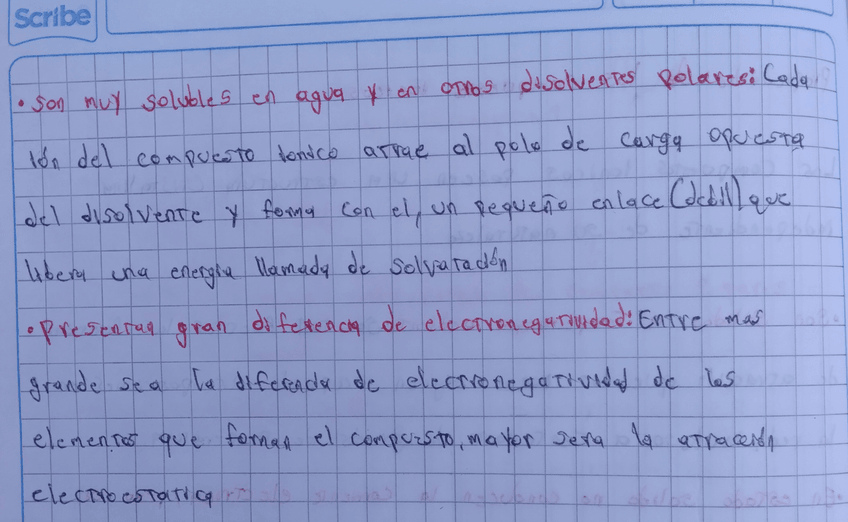 Scribe
• son muy solubles en agua y en otros disolventes polares: Cada
ión del compuesto ionico atrae al polo de carga opuesta
del disolvente y forma con el, un pequeño enlace (debil) que
libera una energia llamada de solvatación
• Presentan gran diferencia de electronegatividad: Entre mas
grande sea la diferencia de electronegatividad de los
elementos que forman el compuesto, mayor sera la atracción
electroestatica